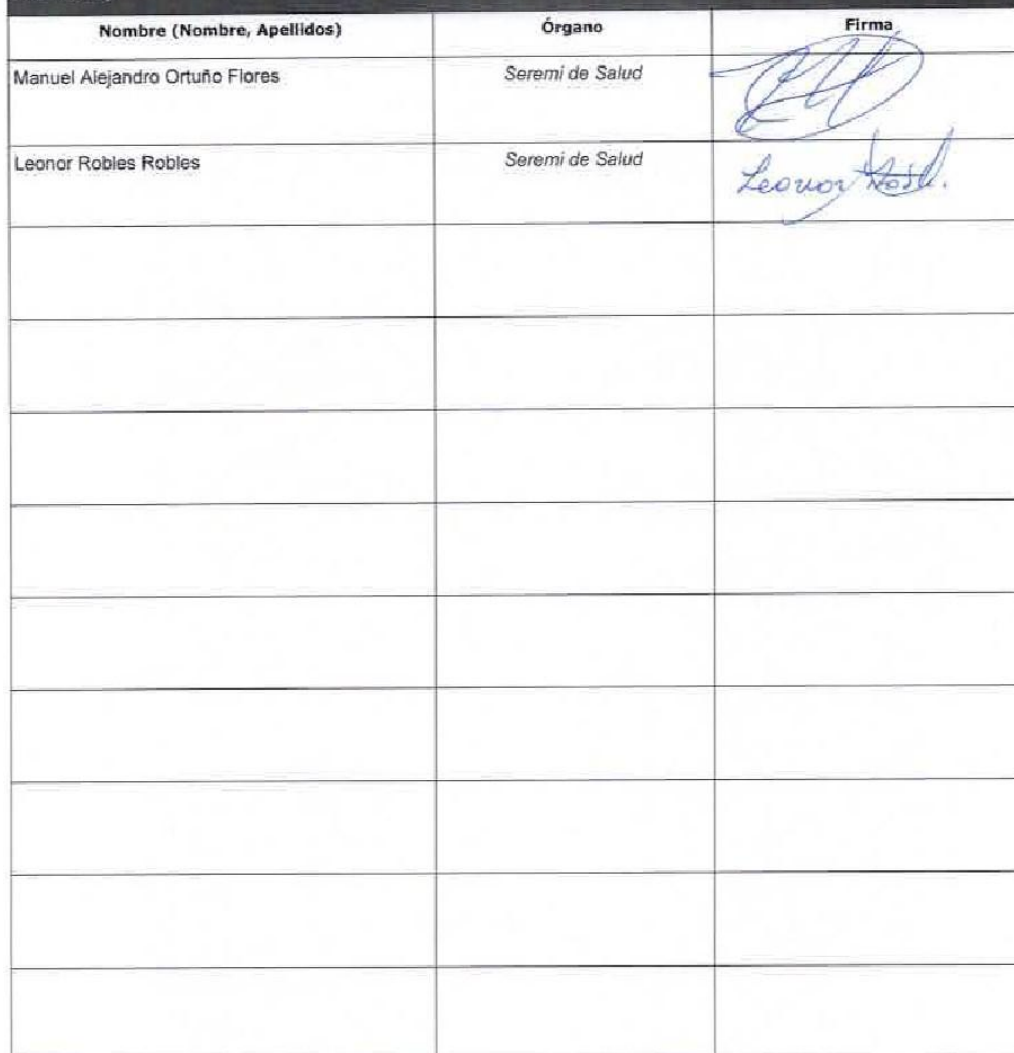 Nombre (Nombre, Apellidos) Órgano Firma
Manuel Alejandro Ortuño Flores Seremi de Salud
Leonor Robles Robles Seremi de Salud
Leonor